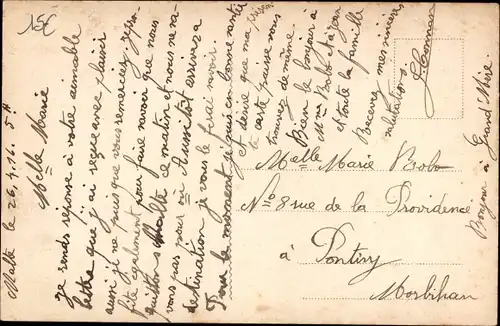 15€
Malte le 26.4.16. 5 H
Melle Marie
je rends réponse à votre aimable
lettre que j'ai reçue avec plaisir
aussi je ne puis que vous remercier, j'ai
été également pour faire savoir que nous
quittons Malte ce matin et nous ne savons
vous pas pour où Aussitôt arriver a
destination je vous le ferai savoir.
Pour le moment je suis en bonne santé
et désire que ma présente
carte puisse vous
trouver de même.
Bien le bonjour à
Mme Bobo et à Jean
et toute la famille
Recevez mes sincères
salutations.
Melle Marie Bobo
No 8 rue de la Providence
à Pontivy
Morbihan
Bonjour à Grand'Mère.